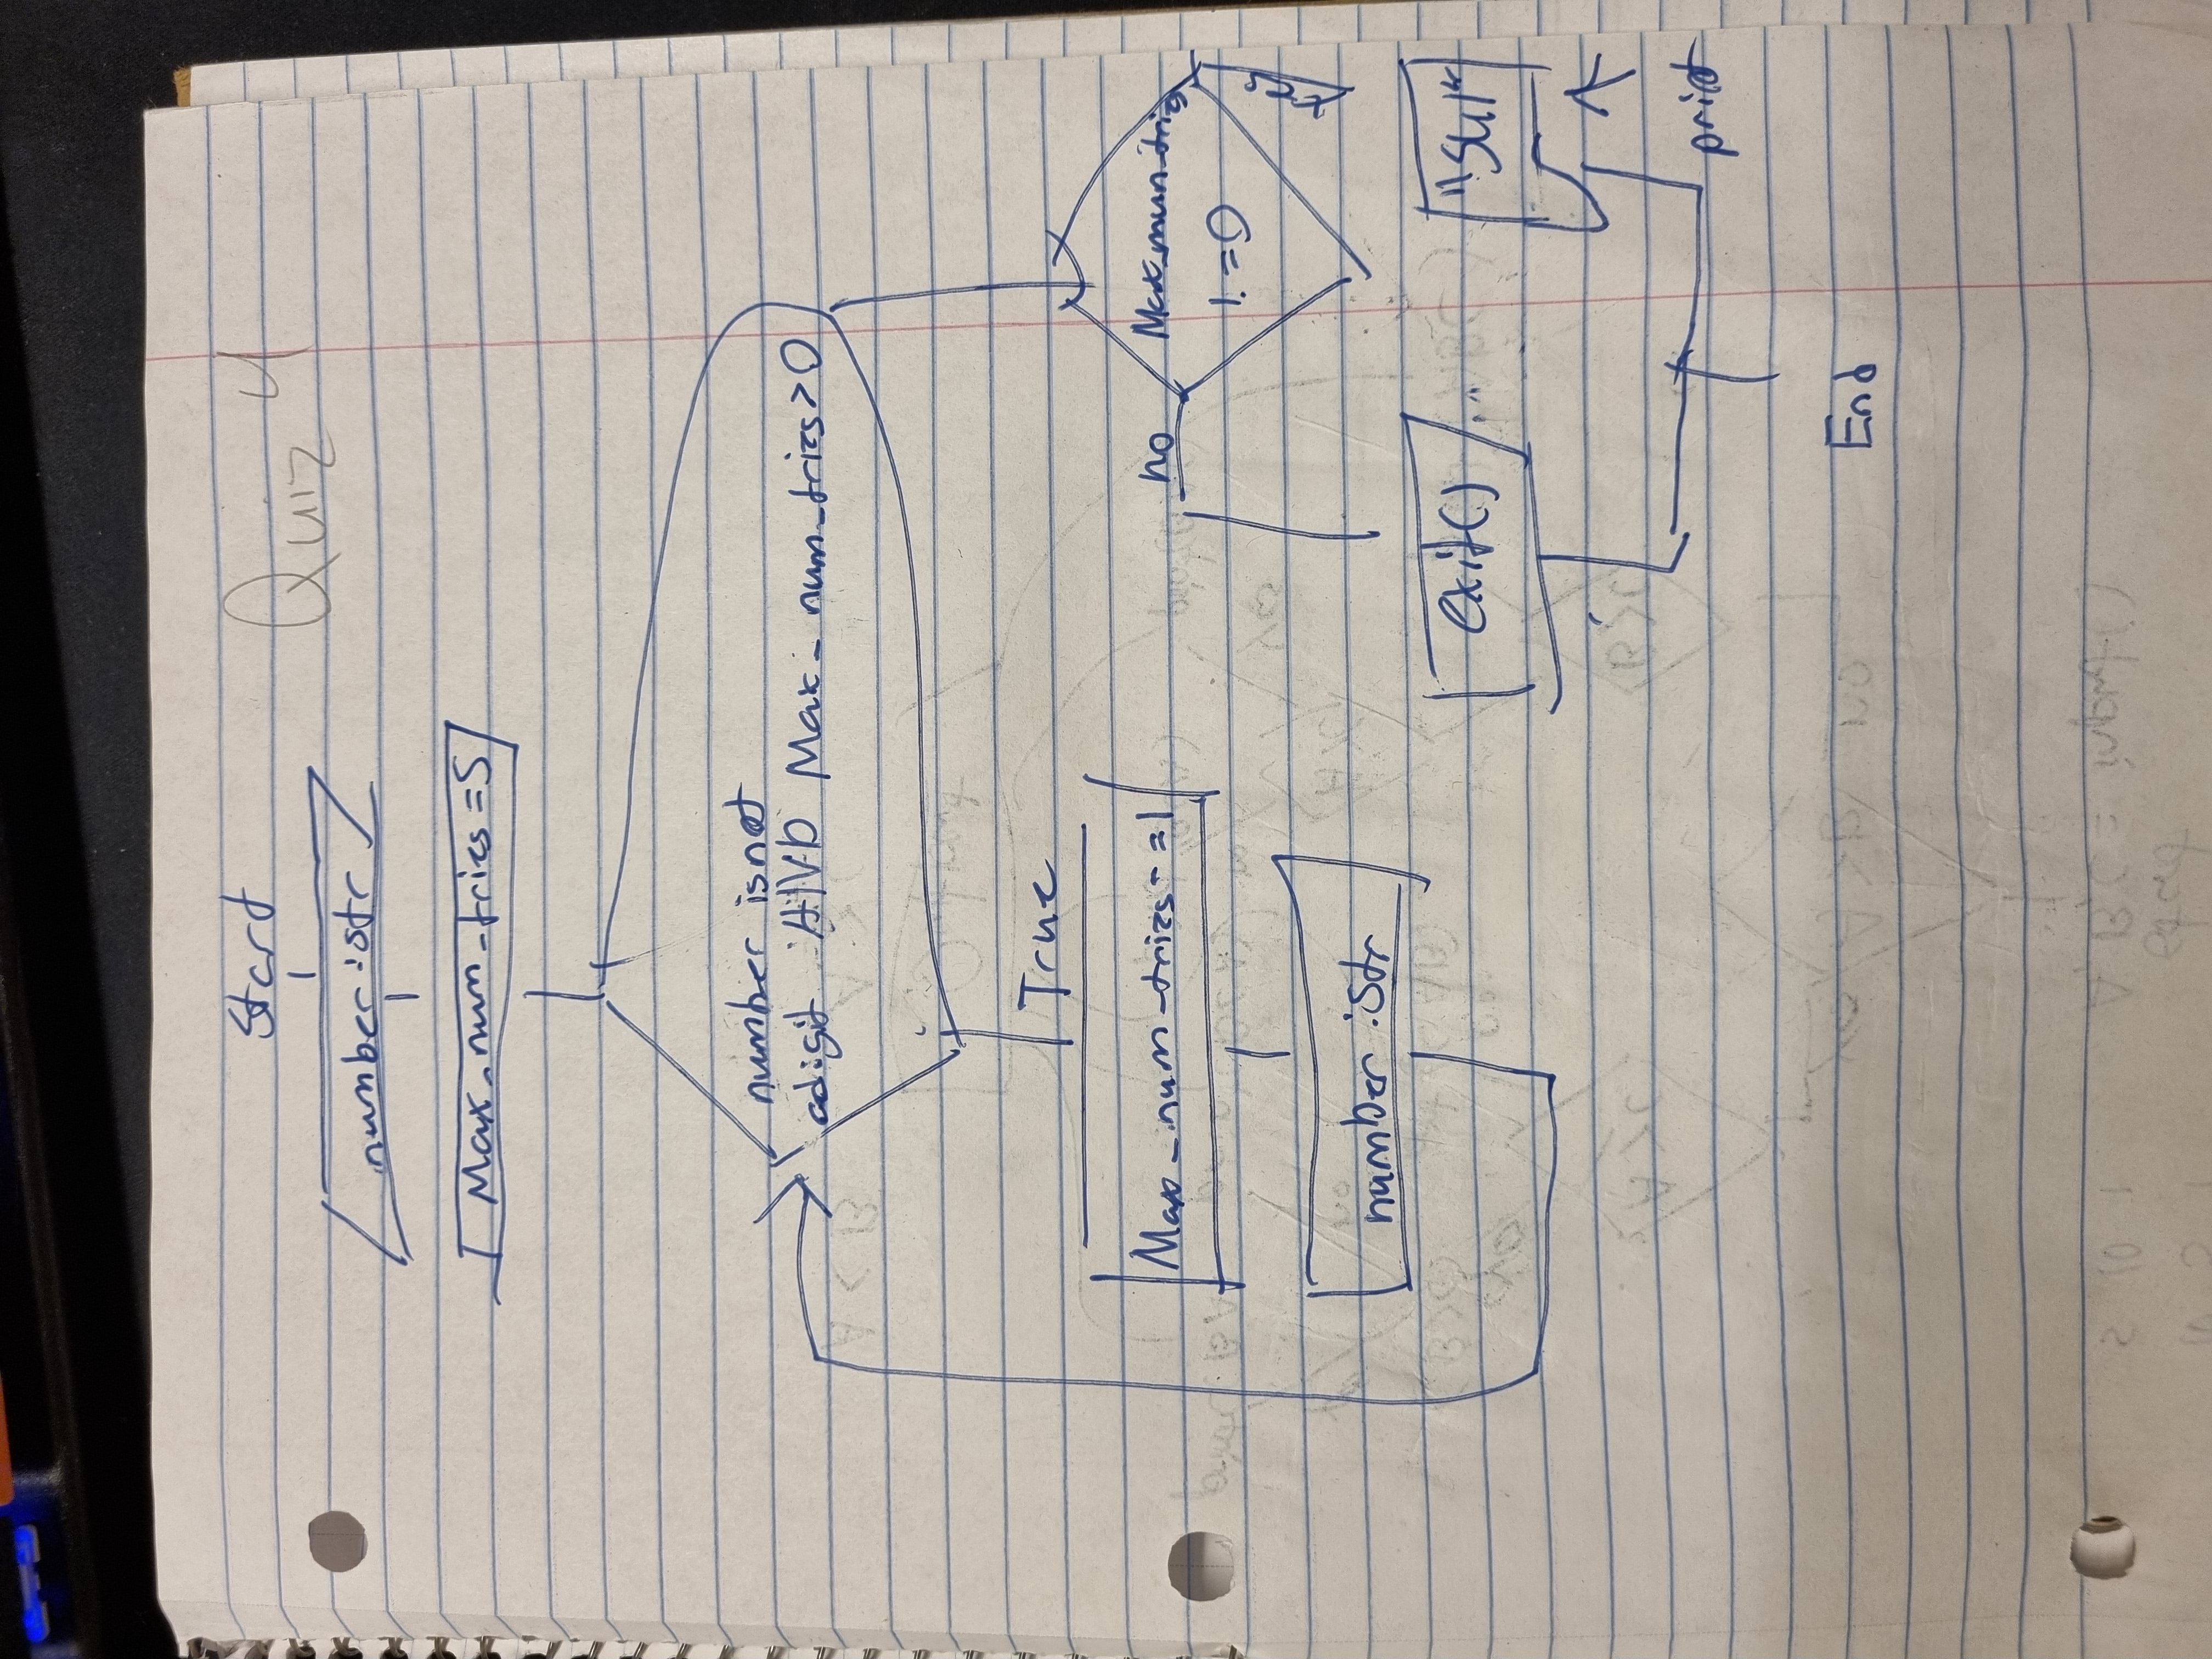 Start
Quiz 4
number : str
Max_num_tries = 5
number is not
a digit AND Max_num_tries > 0
True
Max_num_tries -= 1
no
Max_mun_tries
!= 0
yes
number : str
exit()
print
End